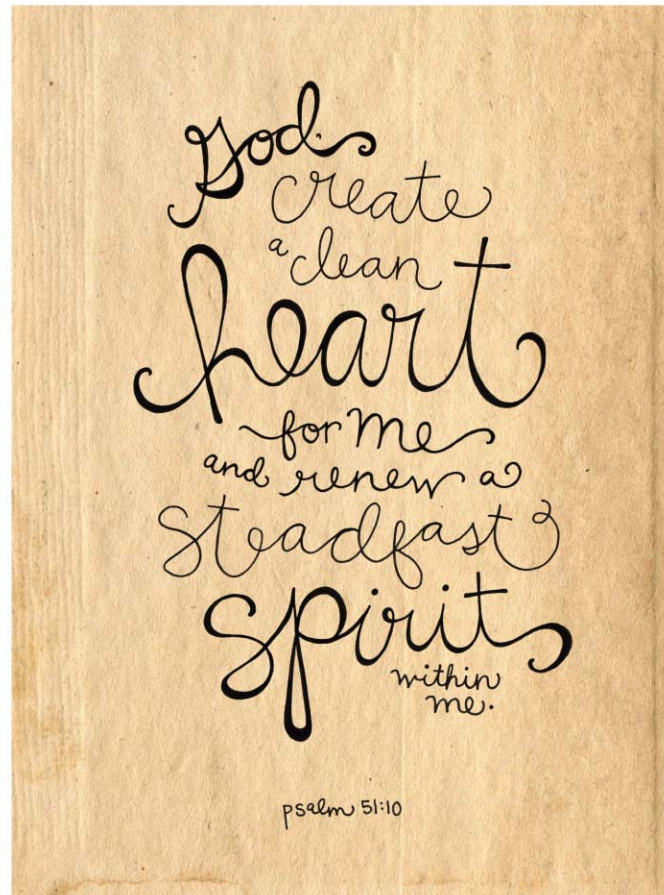 God.
create
a clean
heart
for me
and renew a
steadfast
spirit
within
me.
psalm 51:10